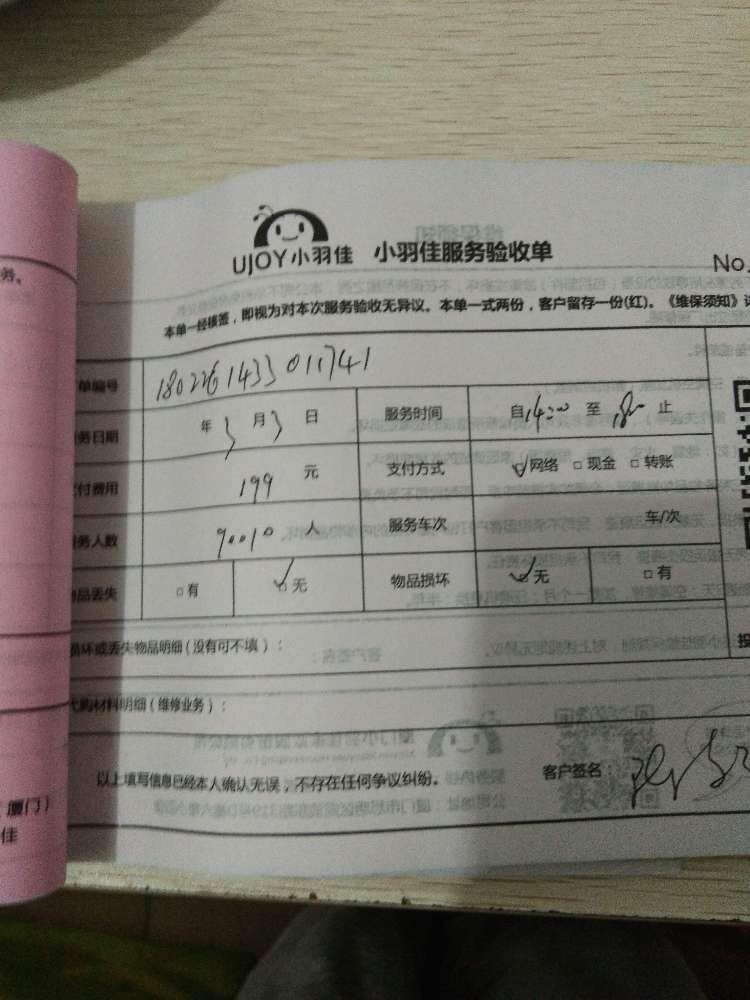 务。
UJOY小羽佳 小羽佳服务验收单
No.
本单一经核签，即视为对本次服务验收无异议。本单一式两份，客户留存一份(红)。《维保须知》
单编号 180226143301741
务日期 年 3 月 3 日 服务时间 自 14:00 至 18:00 止
付费用 199 元 支付方式 网络 现金 转账
务人数 90010 人 服务车次 车/次
品丢失 有 无 物品损坏 无 有
损坏或丢失物品明细(没有可不填)：
代购材料明细(维修业务)：
以上填写信息已经本人确认无误，不存在任何争议纠纷。
客户签名
厦门)
佳